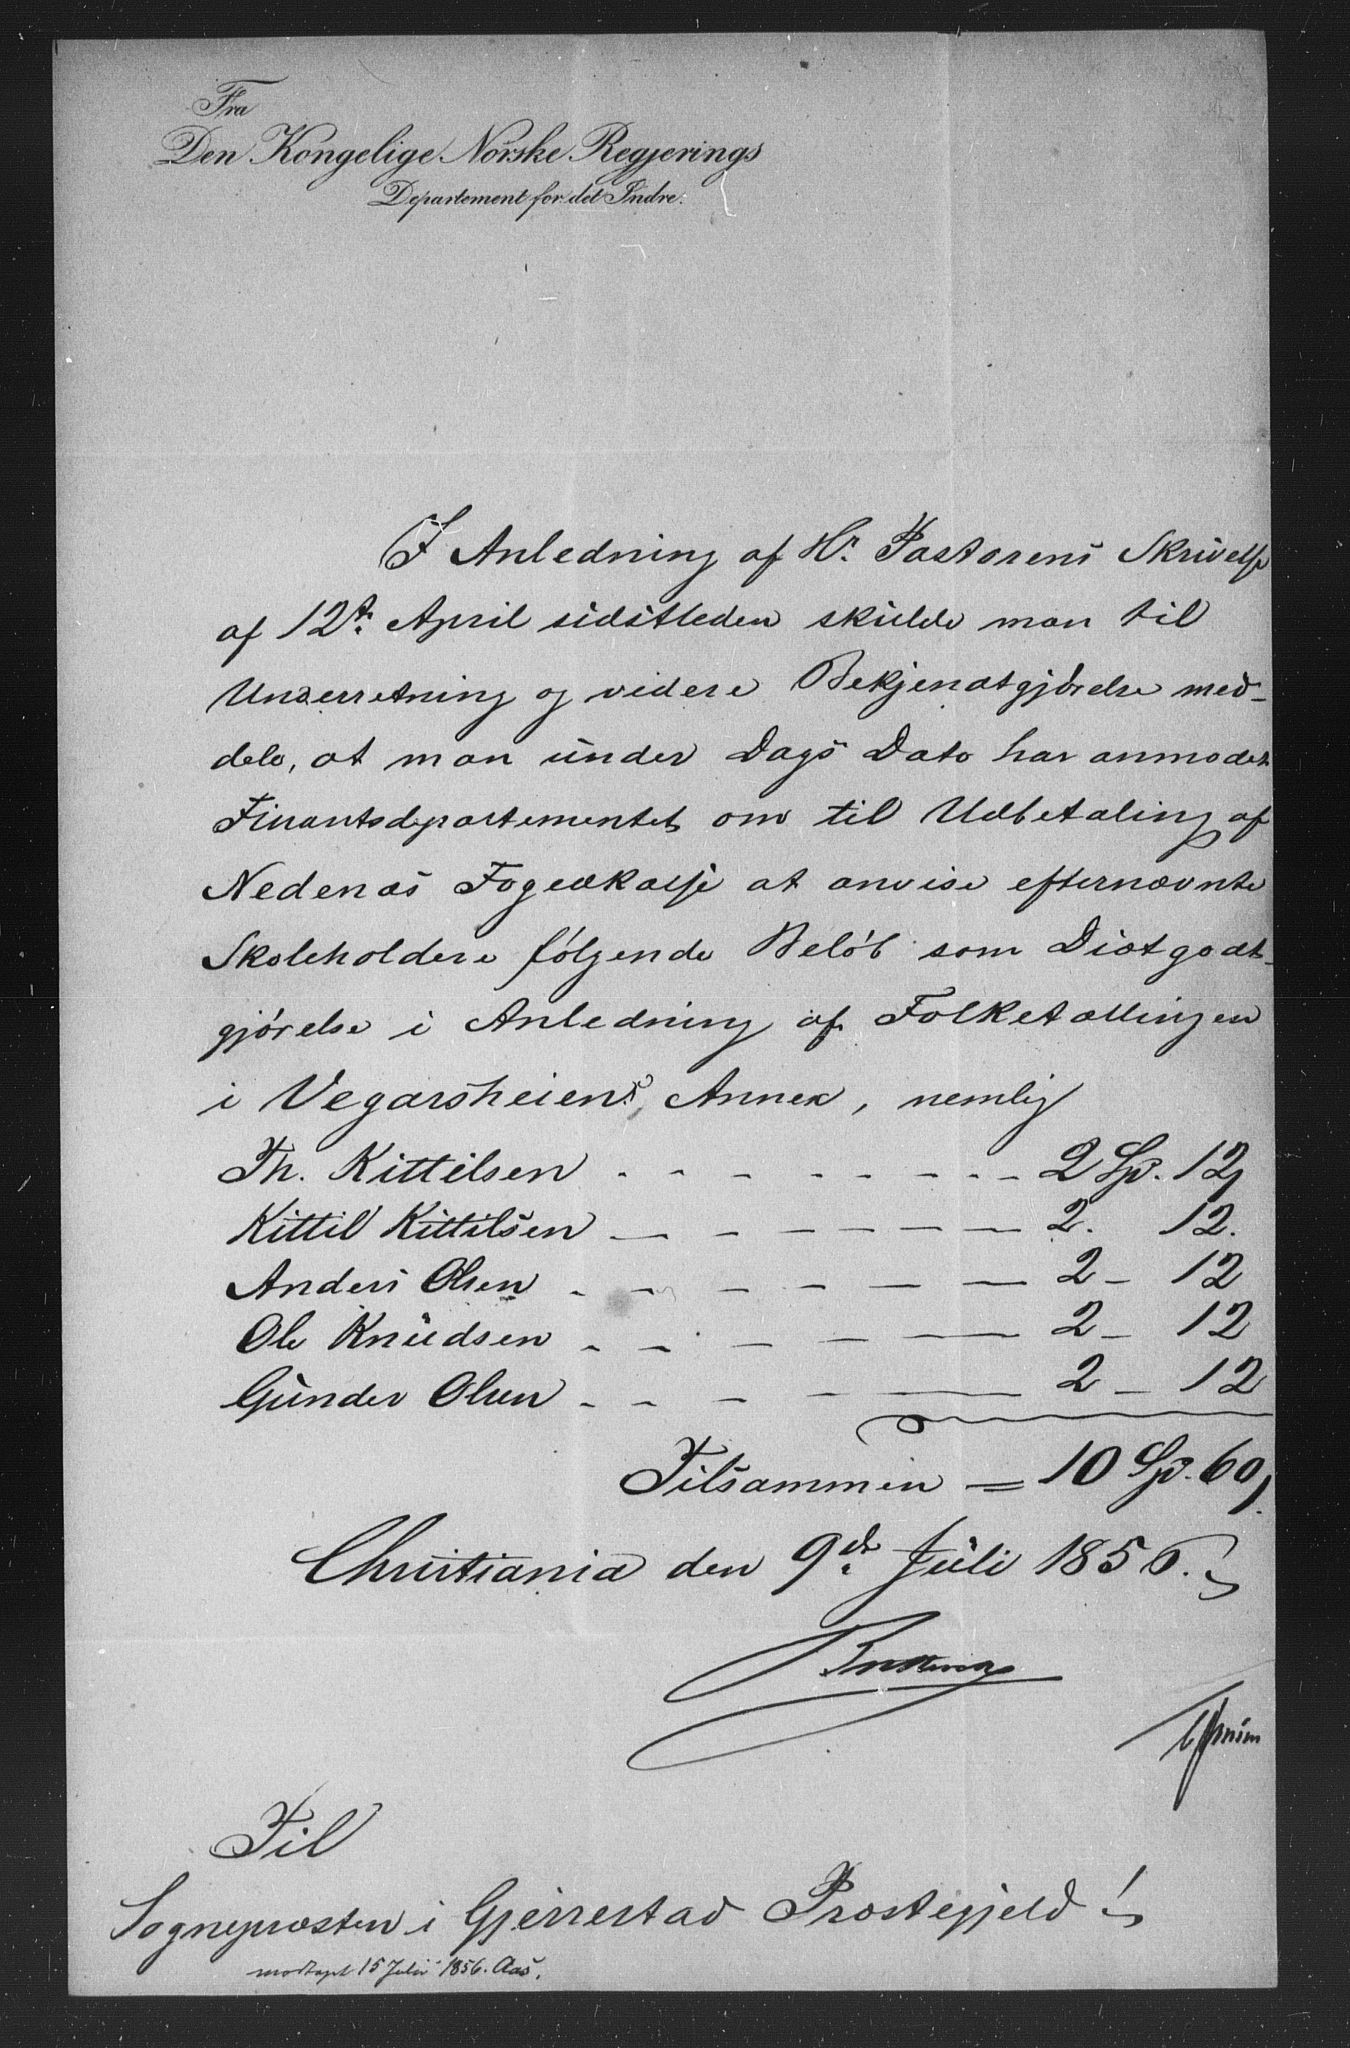 Fra
Den Kongelige Norske Regjerings
Departement for det Indre.
I Anledning af Hr. Pastorens Skrivelse
af 12te April sidstleden skulde man til
Underretning og videre Bekjendtgjørelse med-
dele, at man under Dags Dato har anmodet
Finantsdepartementet om til Udbetaling af
Nedenæs Fogedkasse at anvise efternævnte
Skoleholdere følgende Beløb som Diætgodt-
gjørelse i Anledning af Folketællingen
i Vegarsheiens Annex, nemlig
Th. Kittilsen - - - - - - - - 2 Sp. 12,
Kittil Kittilsen - - - - - - 2. 12.
Anders Olsen - - - - - - 2 - 12
Ole Knudsen - - - - - 2 - 12
Gunder Olsen - - - - - 2 - 12
Tilsammen = 10 Sp. 60,
Christiania den 9de Juli 1856.
Til
Sognepræsten i Gjerrestad Præstegjeld
modtaget 15 Juli 1856. Aas.